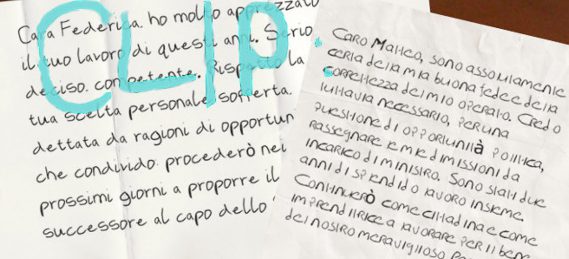 Cara Federica, ho molto apprezzato
il tuo lavoro di questi anni. Serio
deciso, competente. Rispetto la
tua scelta personale sofferta.
dettata da ragioni di opportun
che condivido. procederò nei
prossimi giorni a proporre il
successore al capo dello
CLIP
CARO MATTEO, SONO ASSOLUTAMENTE
CERTA DELLA MIA BUONA FEDE E DELLA
CORRETTEZZA DEL MIO OPERATO. CREDO
TUTTAVIA NECESSARIO, PER UNA
QUESTIONE DI OPPORTUNITÀ POLITICA,
RASSEGNARE LE MIE DIMISSIONI DA
INCARICO DI MINISTRA. SONO STATI DUE
ANNI DI SPLENDIDO LAVORO INSIEME.
CONTINUERÒ COME CITTADINA E COME
IMPRENDITRICE A LAVORARE PER IL BENE
DEL NOSTRO MERAVIGLIOSO